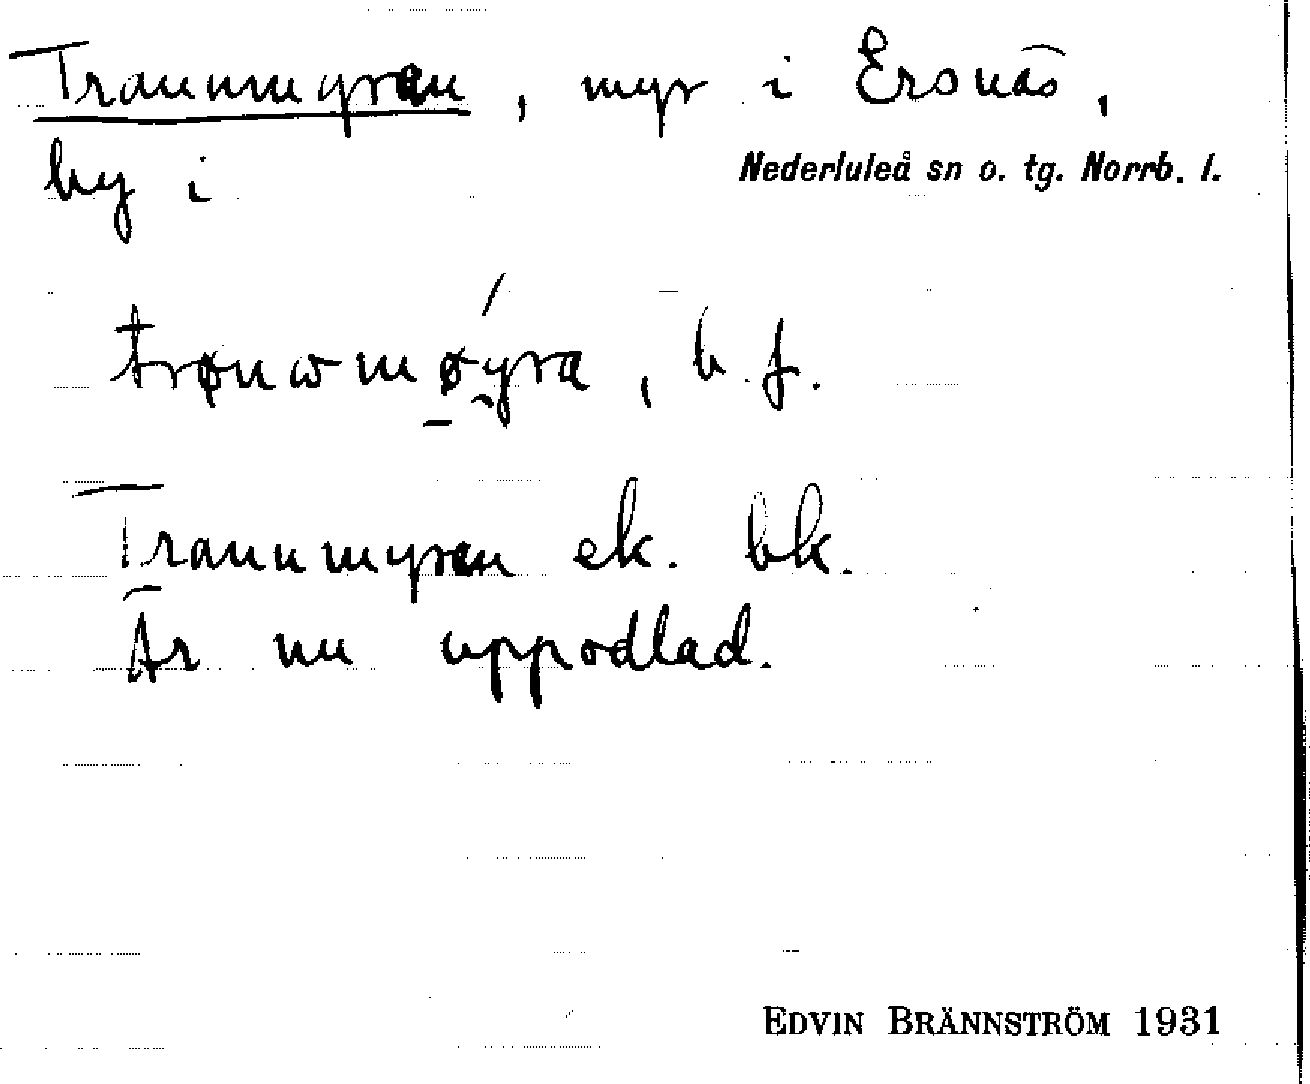 Tranumyran, myr i Ersnäs,
by i Nederluleå sn o. tg. Norrb. l.
trønωmøyra, b. f.
Tranumyran ek. bk.
Är nu uppodlad.
EDVIN BRÄNNSTRÖM 1931